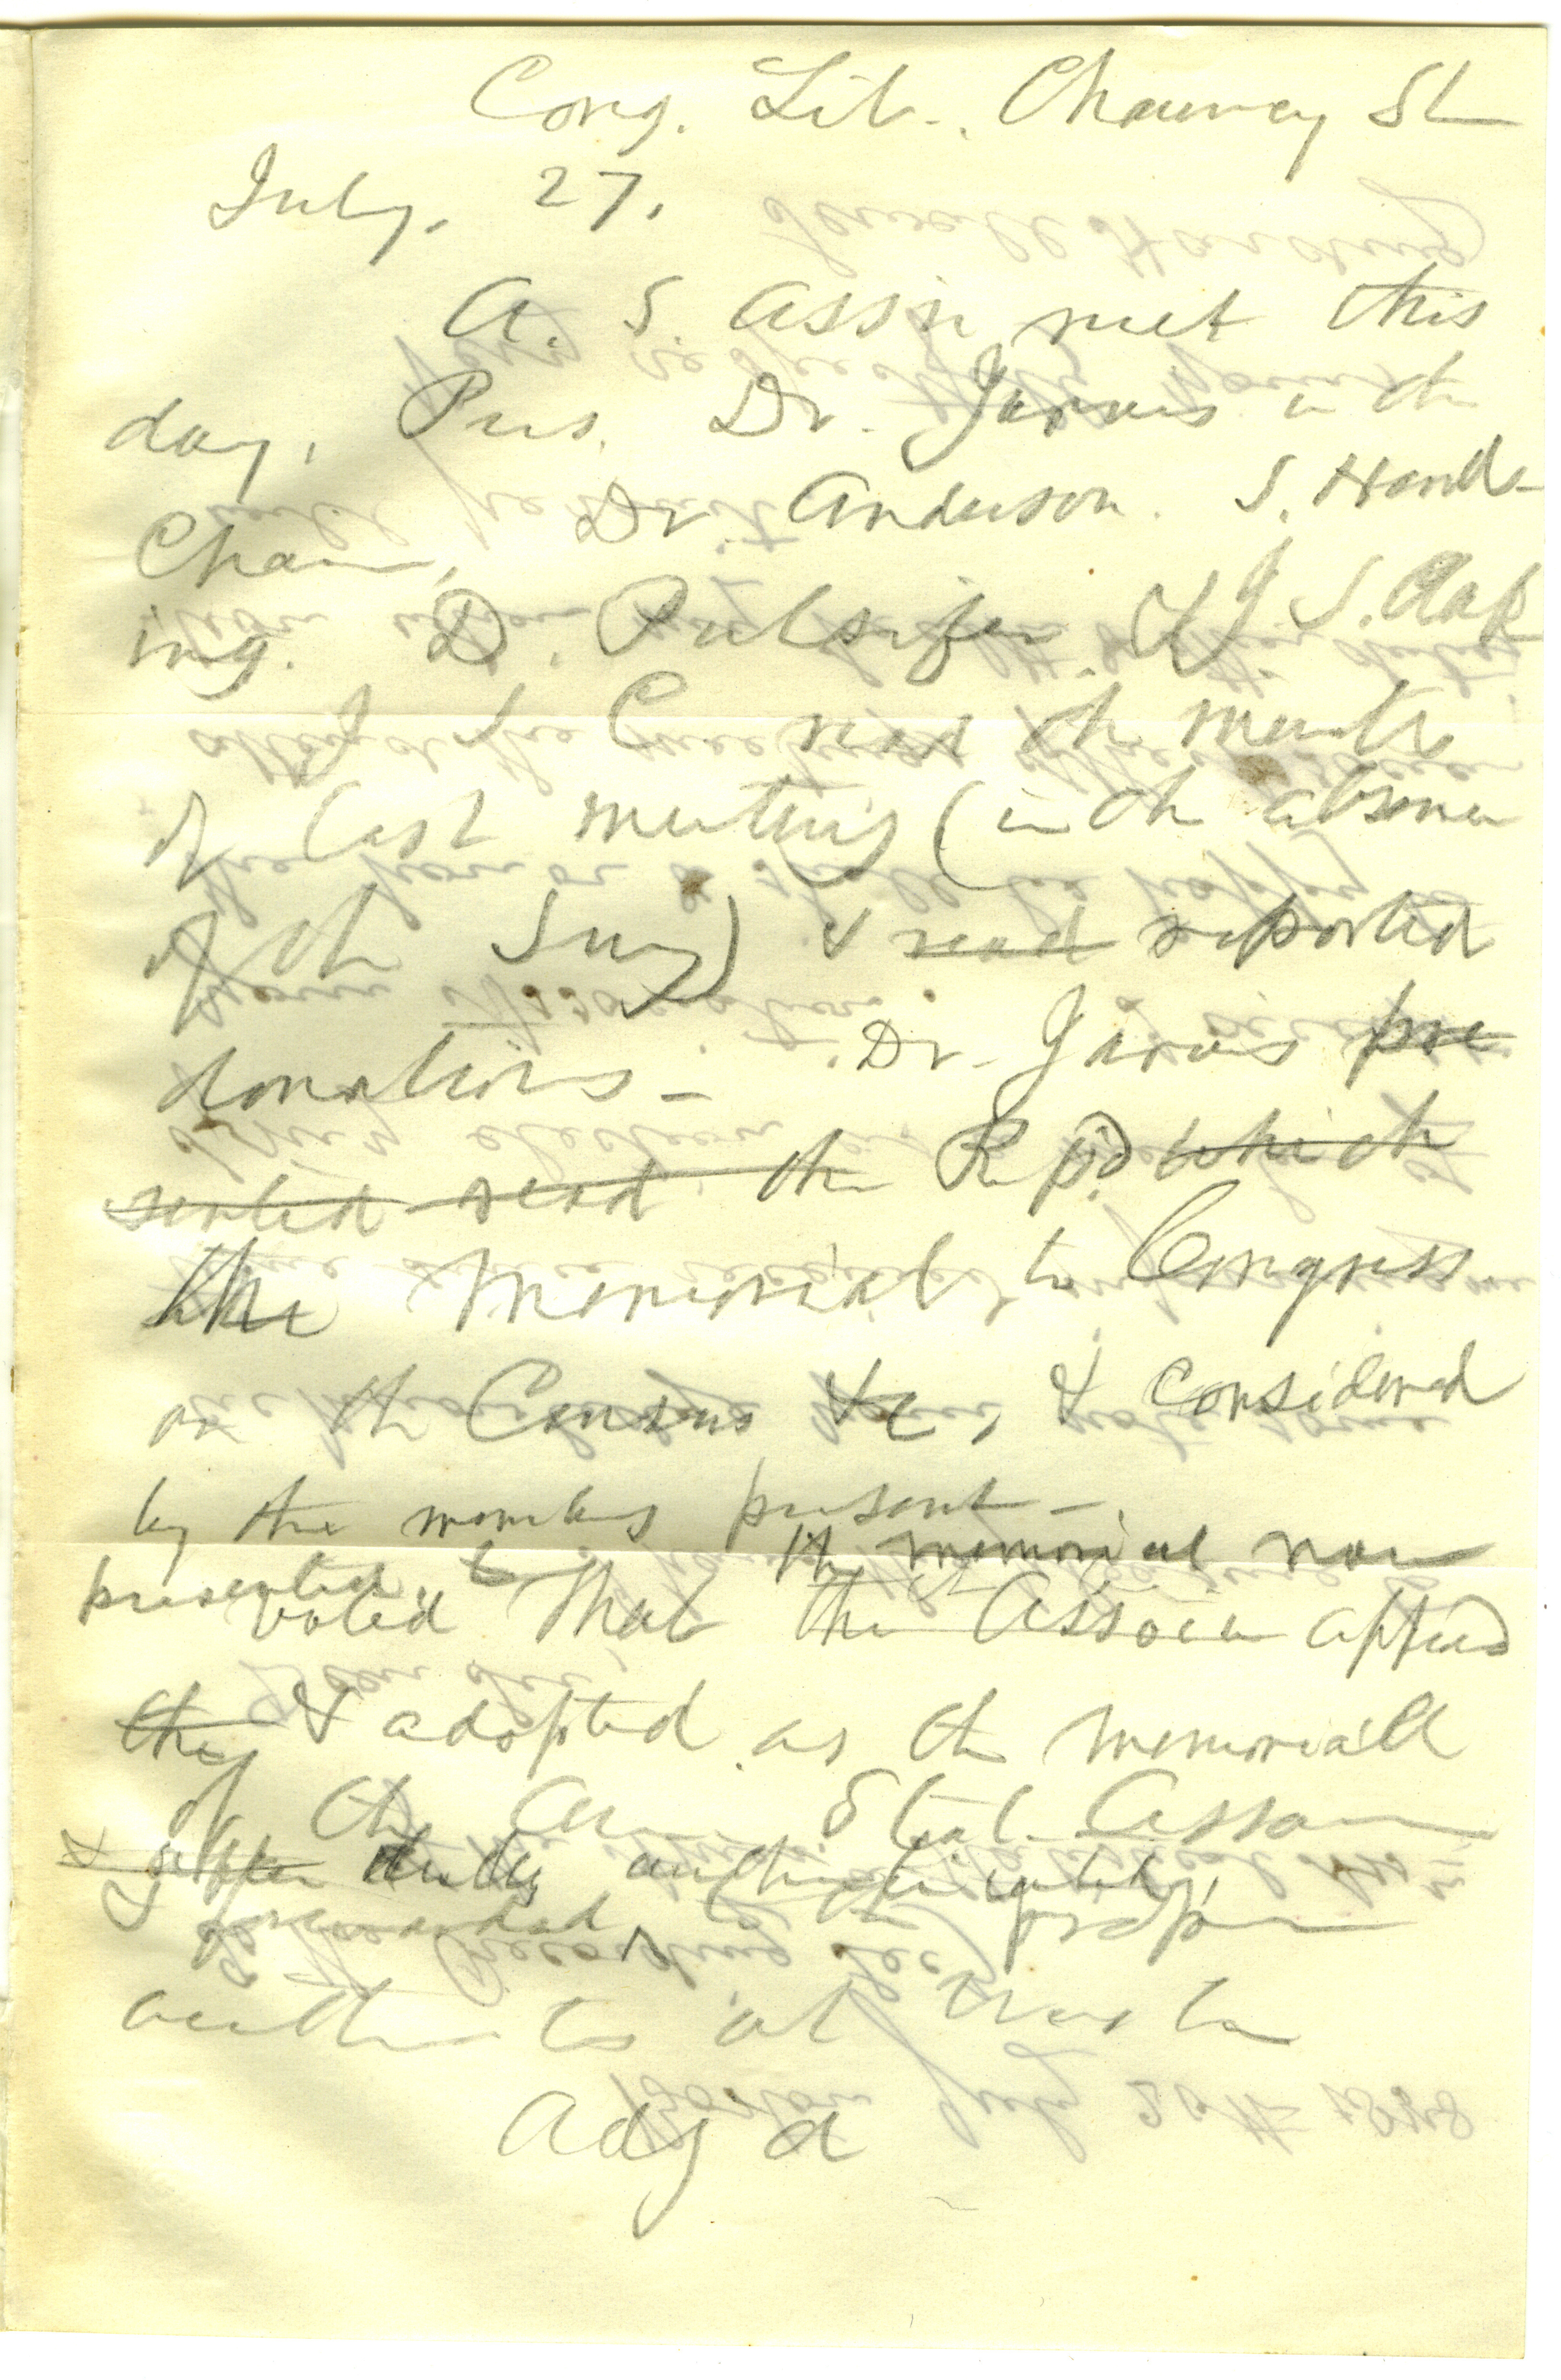 Cong. Lib. Chauncy St
July. 27.
A. S. Ass'n met this
day, Pres. Dr. Jarvis in th
Chair, Dr Anderson. S. Hard-
ing. D. Pulsifer & J. S. Clap
J. S. C read th minutes
of last meeting (in th absence
of th Secy) & read reported
donations - Dr. Jarvis pre
sented read the Rep'd which
the Memorial to Congress
on th Census &c, & considered
by the members present -
the memorial now
presented, be
voted That the Associa app'd
they & adopted as th memorial
of th Am Stat. Asson
& duly authenticated,
forwarded to proper
authorities at
Adj'd